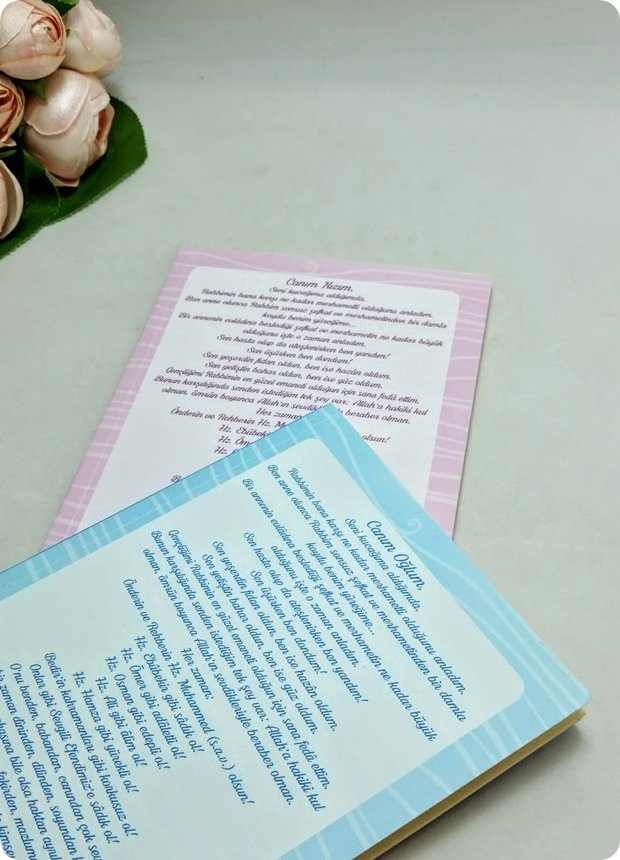 Canım Kızım,
Seni kucağıma aldığımda,
Rabbimin bana karşı ne kadar merhametli olduğunu anladım.
Ben anne olunca Rabbim sonsuz şefkat ve merhametinden bir damla
koydu benim yüreğime...
Bir annenin evlâdına beslediği şefkat ve merhametin ne kadar büyük
olduğunu işte o zaman anladım.
Sen hasta olup da ateşlenirken ben yandım!
Sen üşürken ben dondum!
Sen yeşerdin fidan oldun, ben ise hazân oldum.
Sen yetiştin bahar oldun, ben ise güz oldum.
Gençliğimi Rabbimin en güzel emaneti olduğun için sana fedâ ettim.
Bunun karşılığında senden istediğim tek şey var; Allah'a hakiki kul
olman, ömrün boyunca Allah'ın beraber olman.
Her zaman
Önderin ve Rehberin Hz. olsun!
Hz.
Hz.
Hz.
Canım Oğlum,
Seni kucağıma aldığımda,
Rabbimin bana karşı ne kadar merhametli olduğunu anladım.
Ben anne olunca Rabbim sonsuz şefkat ve merhametinden bir damla
koydu benim yüreğime...
Bir annenin evlâdına beslediği şefkat ve merhametin ne kadar büyük
olduğunu işte o zaman anladım.
Sen hasta olup da ateşlenirken ben yandım!
Sen üşürken ben dondum!
Sen yeşerdin fidan oldun, ben ise hazân oldum.
Sen yetiştin bahar oldun, ben ise güz oldum.
Gençliğimi Rabbimin en güzel emaneti olduğun için sana fedâ ettim.
Bunun karşılığında senden istediğim tek şey var; Allah'a hakiki kul
olman, ömrün boyunca Allah'ın sevdikleriyle beraber olman.
Her zaman;
Önderin ve Rehberin Hz. Muhammed (s.a.v.) olsun!
Hz. Ebûbekir gibi sâdık ol!
Hz. Ömer gibi adâletli ol!
Hz. Osman gibi edepli ol!
Hz. Ali gibi âlim ol!
Hz. Hamza gibi yürekli ol!
Bedir'in kahramanları gibi korkusuz ol!
Onlar gibi Sevgili Efendimiz'e sâdık ol!
Onu benden, babandan, canından çok sev
bir zaman dininden, dilinden, soyundan
pahasına bile olsa haktan
fakirden, mazlum
kimse